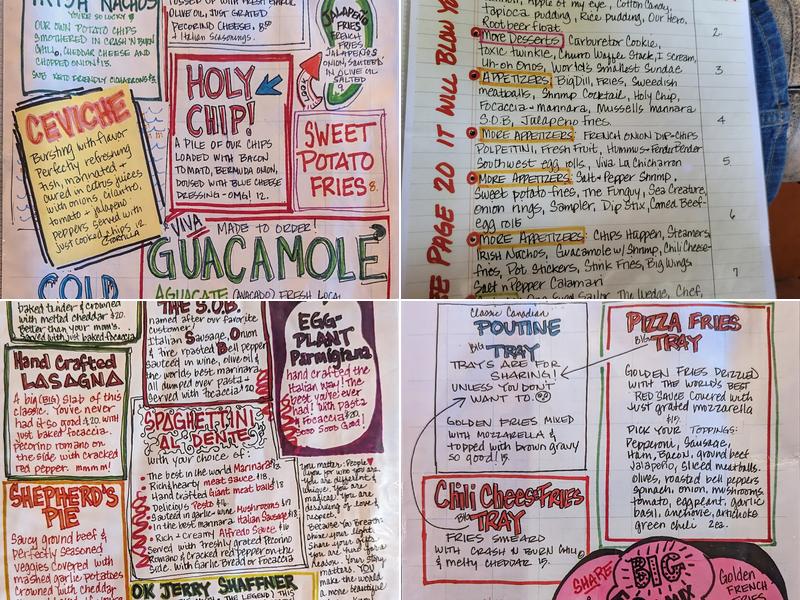 IRISH NACHOS
YOU'RE SO LUCKY
OUR OWN POTATO CHIPS
SMOTHERED IN CRASH 'N BURN
CHILI, CHEDDAR CHEESE AND
CHOPPED ONION! 13.
SUB KETO FRIENDLY CICHARRONS $3.
OLIVE OIL, JUST GRATED
PECORINO CHEESE, 8.50
& Italian Seasonings.
JALAPEÑO
FRIES
FRENCH
FRIES
JALAPEÑOS
ONION, SAUTEED
IN OLIVE OIL
SALTED
9.
CEVICHE
Bursting with flavor
Perfectly refreshing
fish, marinated &
cured in citrus juices
with onions, cilantro,
tomato & jalapeño
peppers served with
just cooked chips 12.
HOLY
CHIP!
A PILE OF OUR CHIPS
LOADED WITH BACON
TOMATO, BERMUDA ONION,
DOUSED WITH BLUE CHEESE
DRESSING - OMG! 12.
SWEET
POTATO
FRIES 8.
VIVA MADE TO ORDER!
GUACAMOLE
AGUACATE (AVACADO) FRESH LOCAL
COLD
PAGE 20 IT WILL BLOW
Apple of my eye, Cotton Candy,
tapioca pudding, Rice pudding, Our Hero,
Rootbeer float
More Desserts Carburetor Cookie,
toxic twinkie, Churro Waffle Stack, I scream,
Uh-oh Onos, Worlds Smallest Sundae
APPETIZERS Big Dill, Fries, Sweedish
meatballs, Shrimp Cocktail, Holy Chip,
Focaccia - mannara, Mussells mannara
S.O.B, Jalapeno fries.
MORE APPETIZERS FRENCH ONION DIP-CHIPS
POLPETTINI, Fresh Fruit, Hummus-
Southwest egg rolls, Viva La Chicharron
MORE APPETIZERS Salt & Pepper Shrimp,
Sweet potato fries, The Funguy, Sea Creature,
onion rings, Sampler, Dip Stix, Corned Beef-
egg rolls
MORE APPETIZERS CHIPS HAPPEN, Steamers
IRISH NACHOS, Guacamole w/ Shrimp, Chili Cheese-
fries, Pot Stickers, Stink Fries, Big Wings
Salt n Pepper Calamari
Sailor, The Wedge, Chef,
2
3
4
5
6
7
baked tender & crowned
with melted cheddar $20.
Better than your mom's.
served with just baked focaccia
THE S.O.B.
named after our favorite
customer!
Italian Sausage, Onion
& fire roasted Bell pepper
sauteed in wine, olive oil &
the worlds best marinara
all dumped over pasta &
served with focaccia $20
EGG-
PLANT
Parmigiana
hand crafted the
Italian Way! The
best you've ever
had! with pasta
& focaccia $20
Sooo Sooo Good!
Hand Crafted
LASAGNA
A big (BIG) slab of this
classic. You've never
had it so good $20. with
just baked focaccia.
pecorino romano on
the side with cracked
red pepper. mmm m!
SPAGHETTINI
AL DENTE
with your choice of:
The best in the World Marinara $13
Rich hearty meat sauce. $18
Hand Crafted Giant meat balls $18
Delicious Pesto $16
Sauteed in garlic-wine Mushrooms $17
In the best mannara Italian Sausage $18
Rich & Creamy Alfredo Sauce $16
Served with freshly grated Pecorino
Romano & Cracked red pepper on the
side. with Garlic Bread or Focaccia
SHEPHERD'S
PIE
Saucy ground beef &
perfectly seasoned
veggies covered with
mashed garlic potatoes
crowned with cheddar
OK JERRY SHAFFNER
THE LEGEND! THIS
you matter. People
Because Ya Breath
Share your light
Classic Canadian
POUTINE
Big TRAY
TRAYS ARE FOR
SHARING!
UNLESS YOU DON'T
WANT TO.
GOLDEN FRIES MIXED
WITH MOZZARELLA &
topped with brown gravy
SO GOOD! 15.
Chili Cheese Fries
Big TRAY
FRIES SMEARD
WITH CRASH N BURN CHILI
& melty CHEDDAR 15.
PIZZA FRIES
Big TRAY
GOLDEN FRIES DRIZZLED
WITH THE WORLD'S BEST
RED SAUCE Covered with
Just grated mozzarella
$15.
PICK YOUR TOPPINGS:
Pepperoni, Sausage,
Ham, Bacon, ground beef
Jalapeño, Sliced meatballs.
olives, roasted bell peppers
spinach, onion, mushrooms.
tomato, eggplant, garlic
basil, anchovie, artichoke
green chili 2ea.
SHARE
BIG
Golden
FRENCH
FRIES